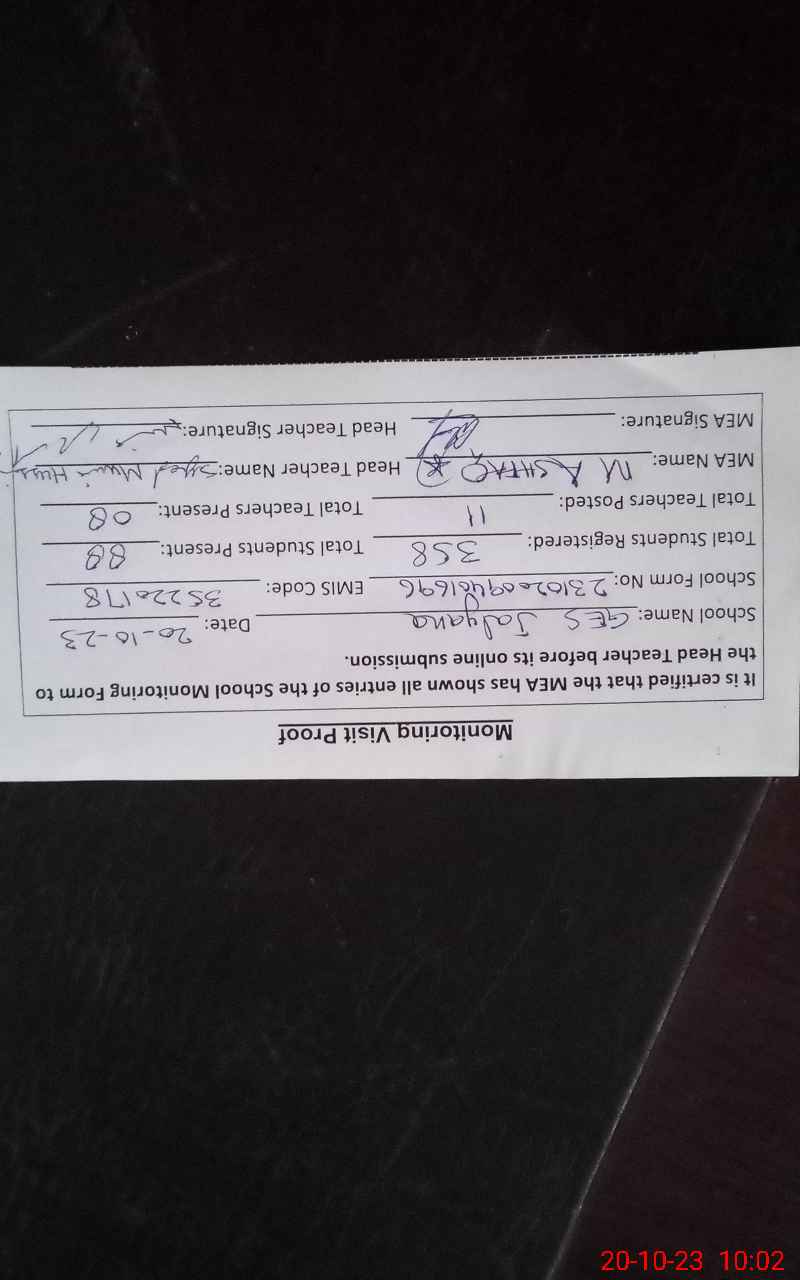 Monitoring Visit Proof
It is certified that the MEA has shown all entries of the School Monitoring Form to
the Head Teacher before its online submission.
School Name: GES Jalyana Date: 20-10-23
School Form No: 231020094616 96 EMIS Code: 35220178
Total Students Registered: 358 Total Students Present: 88
Total Teachers Posted: 11 Total Teachers Present: 08
MEA Name: M ASHFAQ Head Teacher Name: Syed
MEA Signature: Head Teacher Signature:
20-10-23 10:02